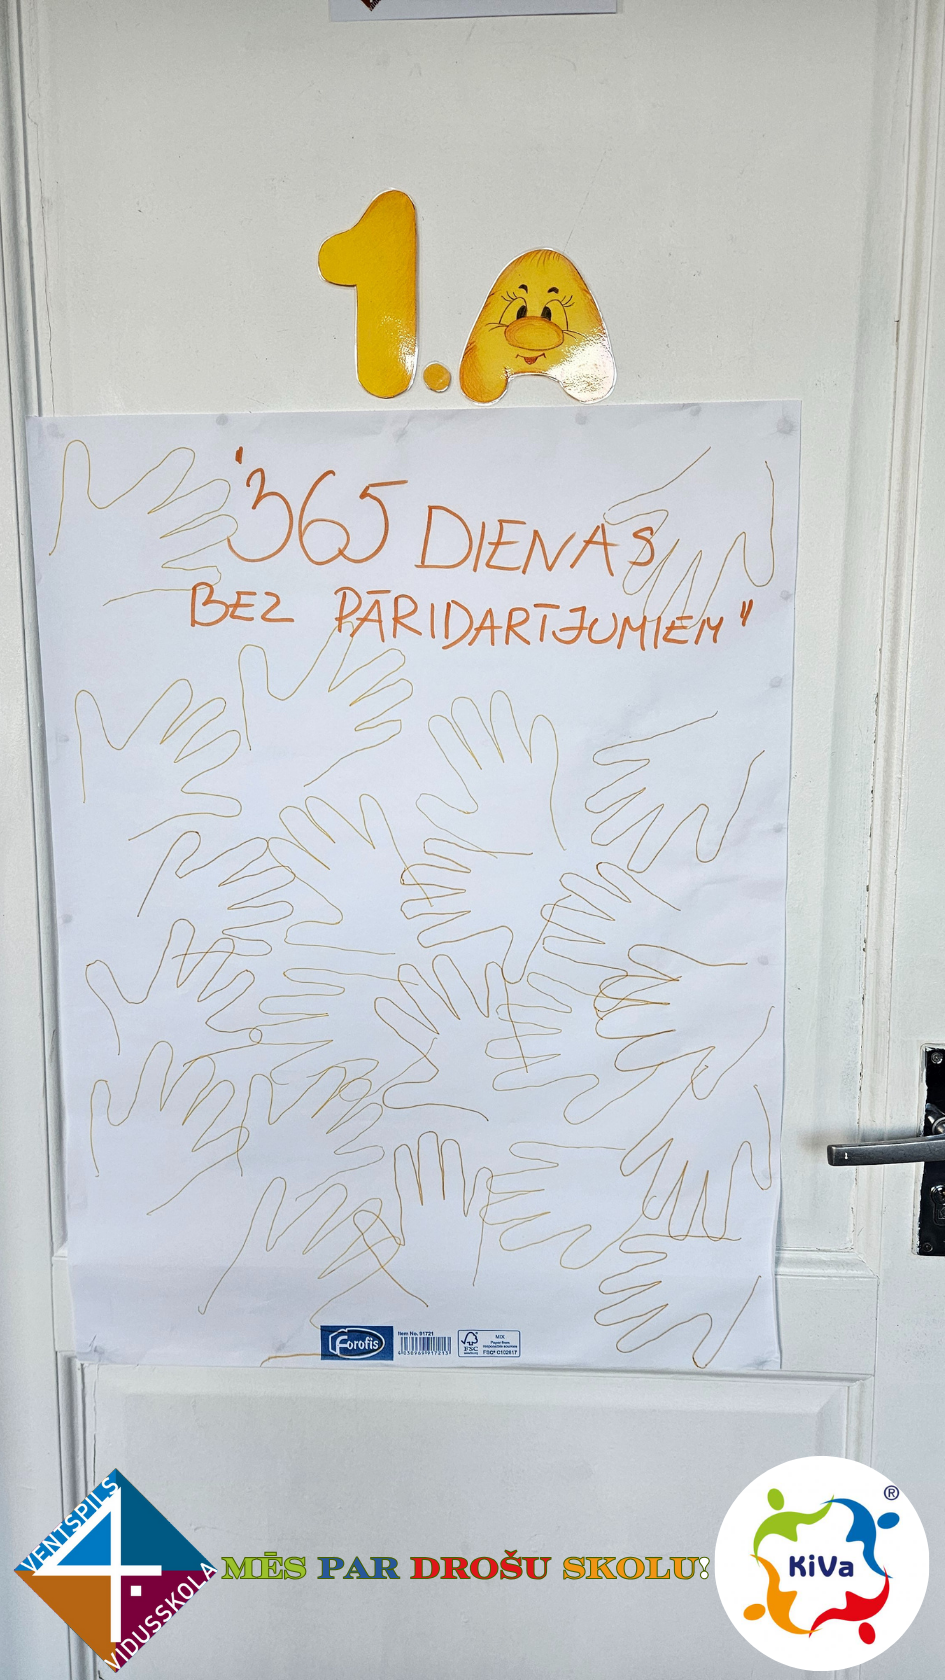 1.A
"365 DIENAS
BEZ PĀRIDARĪJUMIEM"
Forofis
Item No. 91721
FSC
MIX
VENTSPILS
4.
VIDUSSKOLA
MĒS PAR DROŠU SKOLU!
KiVa
®